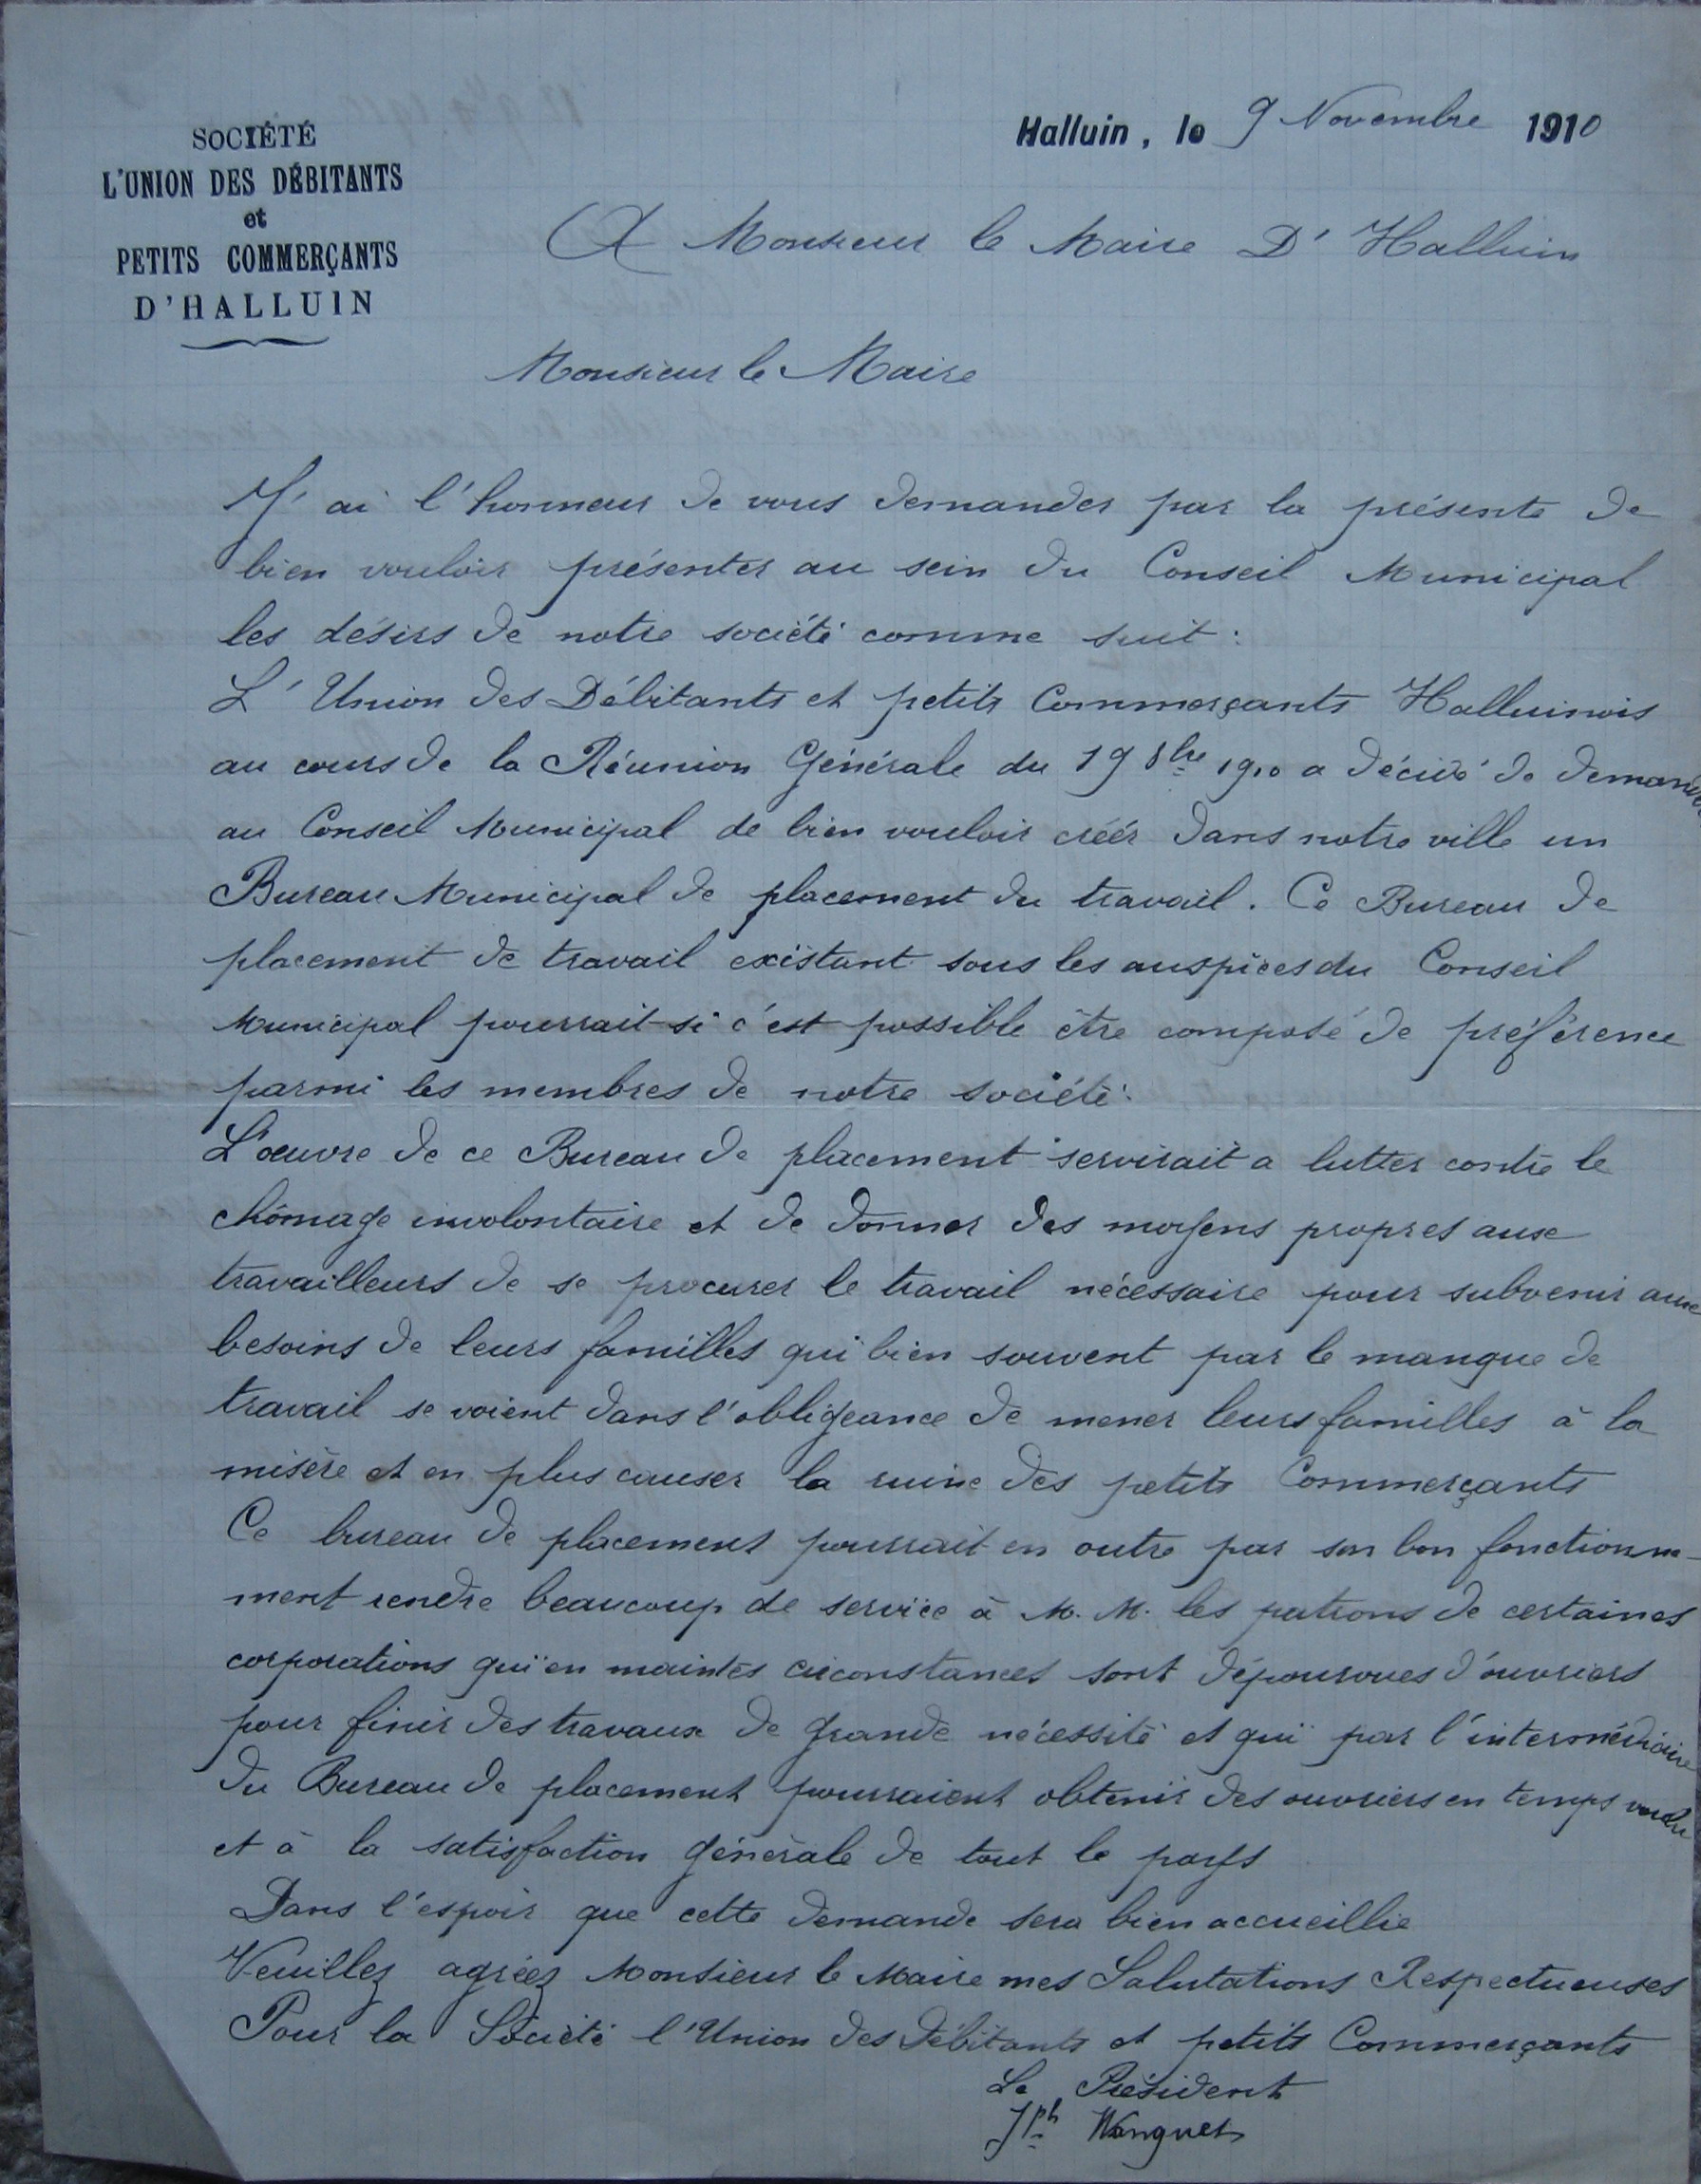 SOCIÉTÉ
L'UNION DES DÉBITANTS
et
PETITS COMMERÇANTS
D'HALLUIN
Halluin, le 9 Novembre 1910
A Monsieur le Maire D'Halluin
Monsieur le Maire
J'ai l'honneur de vous demander par la présente de
bien vouloir présenter au sein du Conseil Municipal
les désirs de notre société comme suit :
L'Union des Débitants et petits Commerçants Halluinois
au cours de la Réunion Générale du 19 8bre 1910 a décidé de demander
au Conseil Municipal de bien vouloir créér dans notre ville un
Bureau Municipal de placement du travail. Ce Bureau de
placement de travail existant sous les auspices du Conseil
Municipal pourrait si c'est possible être composé de préférence
parmi les membres de notre société.
L'œuvre de ce Bureau de placement servirait a lutter contre le
chômage involontaire et de donner des moyens propres aux
travailleurs de se procurer le travail nécessaire pour subvenir aux
besoins de leurs familles qui bien souvent par le manque de
travail se voient dans l'obligeance de mener leurs familles à la
misère et en plus causer la ruine des petits Commerçants
Ce bureau de placement pourrait en outre par son bon fonctionne-
ment rendre beaucoup de service à M. M. les patrons de certaines
corporations qui en maintes circonstances sont dépourvues d'ouvriers
pour finir des travaux de grande nécessité et qui par l'intermédiaire
du Bureau de placement pourraient obtenir des ouvriers en temps voulu
et à la satisfaction générale de tout le pays
Dans l'espoir que cette demande sera bien accueillie
Veuillez agréez Monsieur le Maire mes Salutations Respectueuses
Pour la Société l'Union des Débitants et petits Commerçants
Le Président
Jph